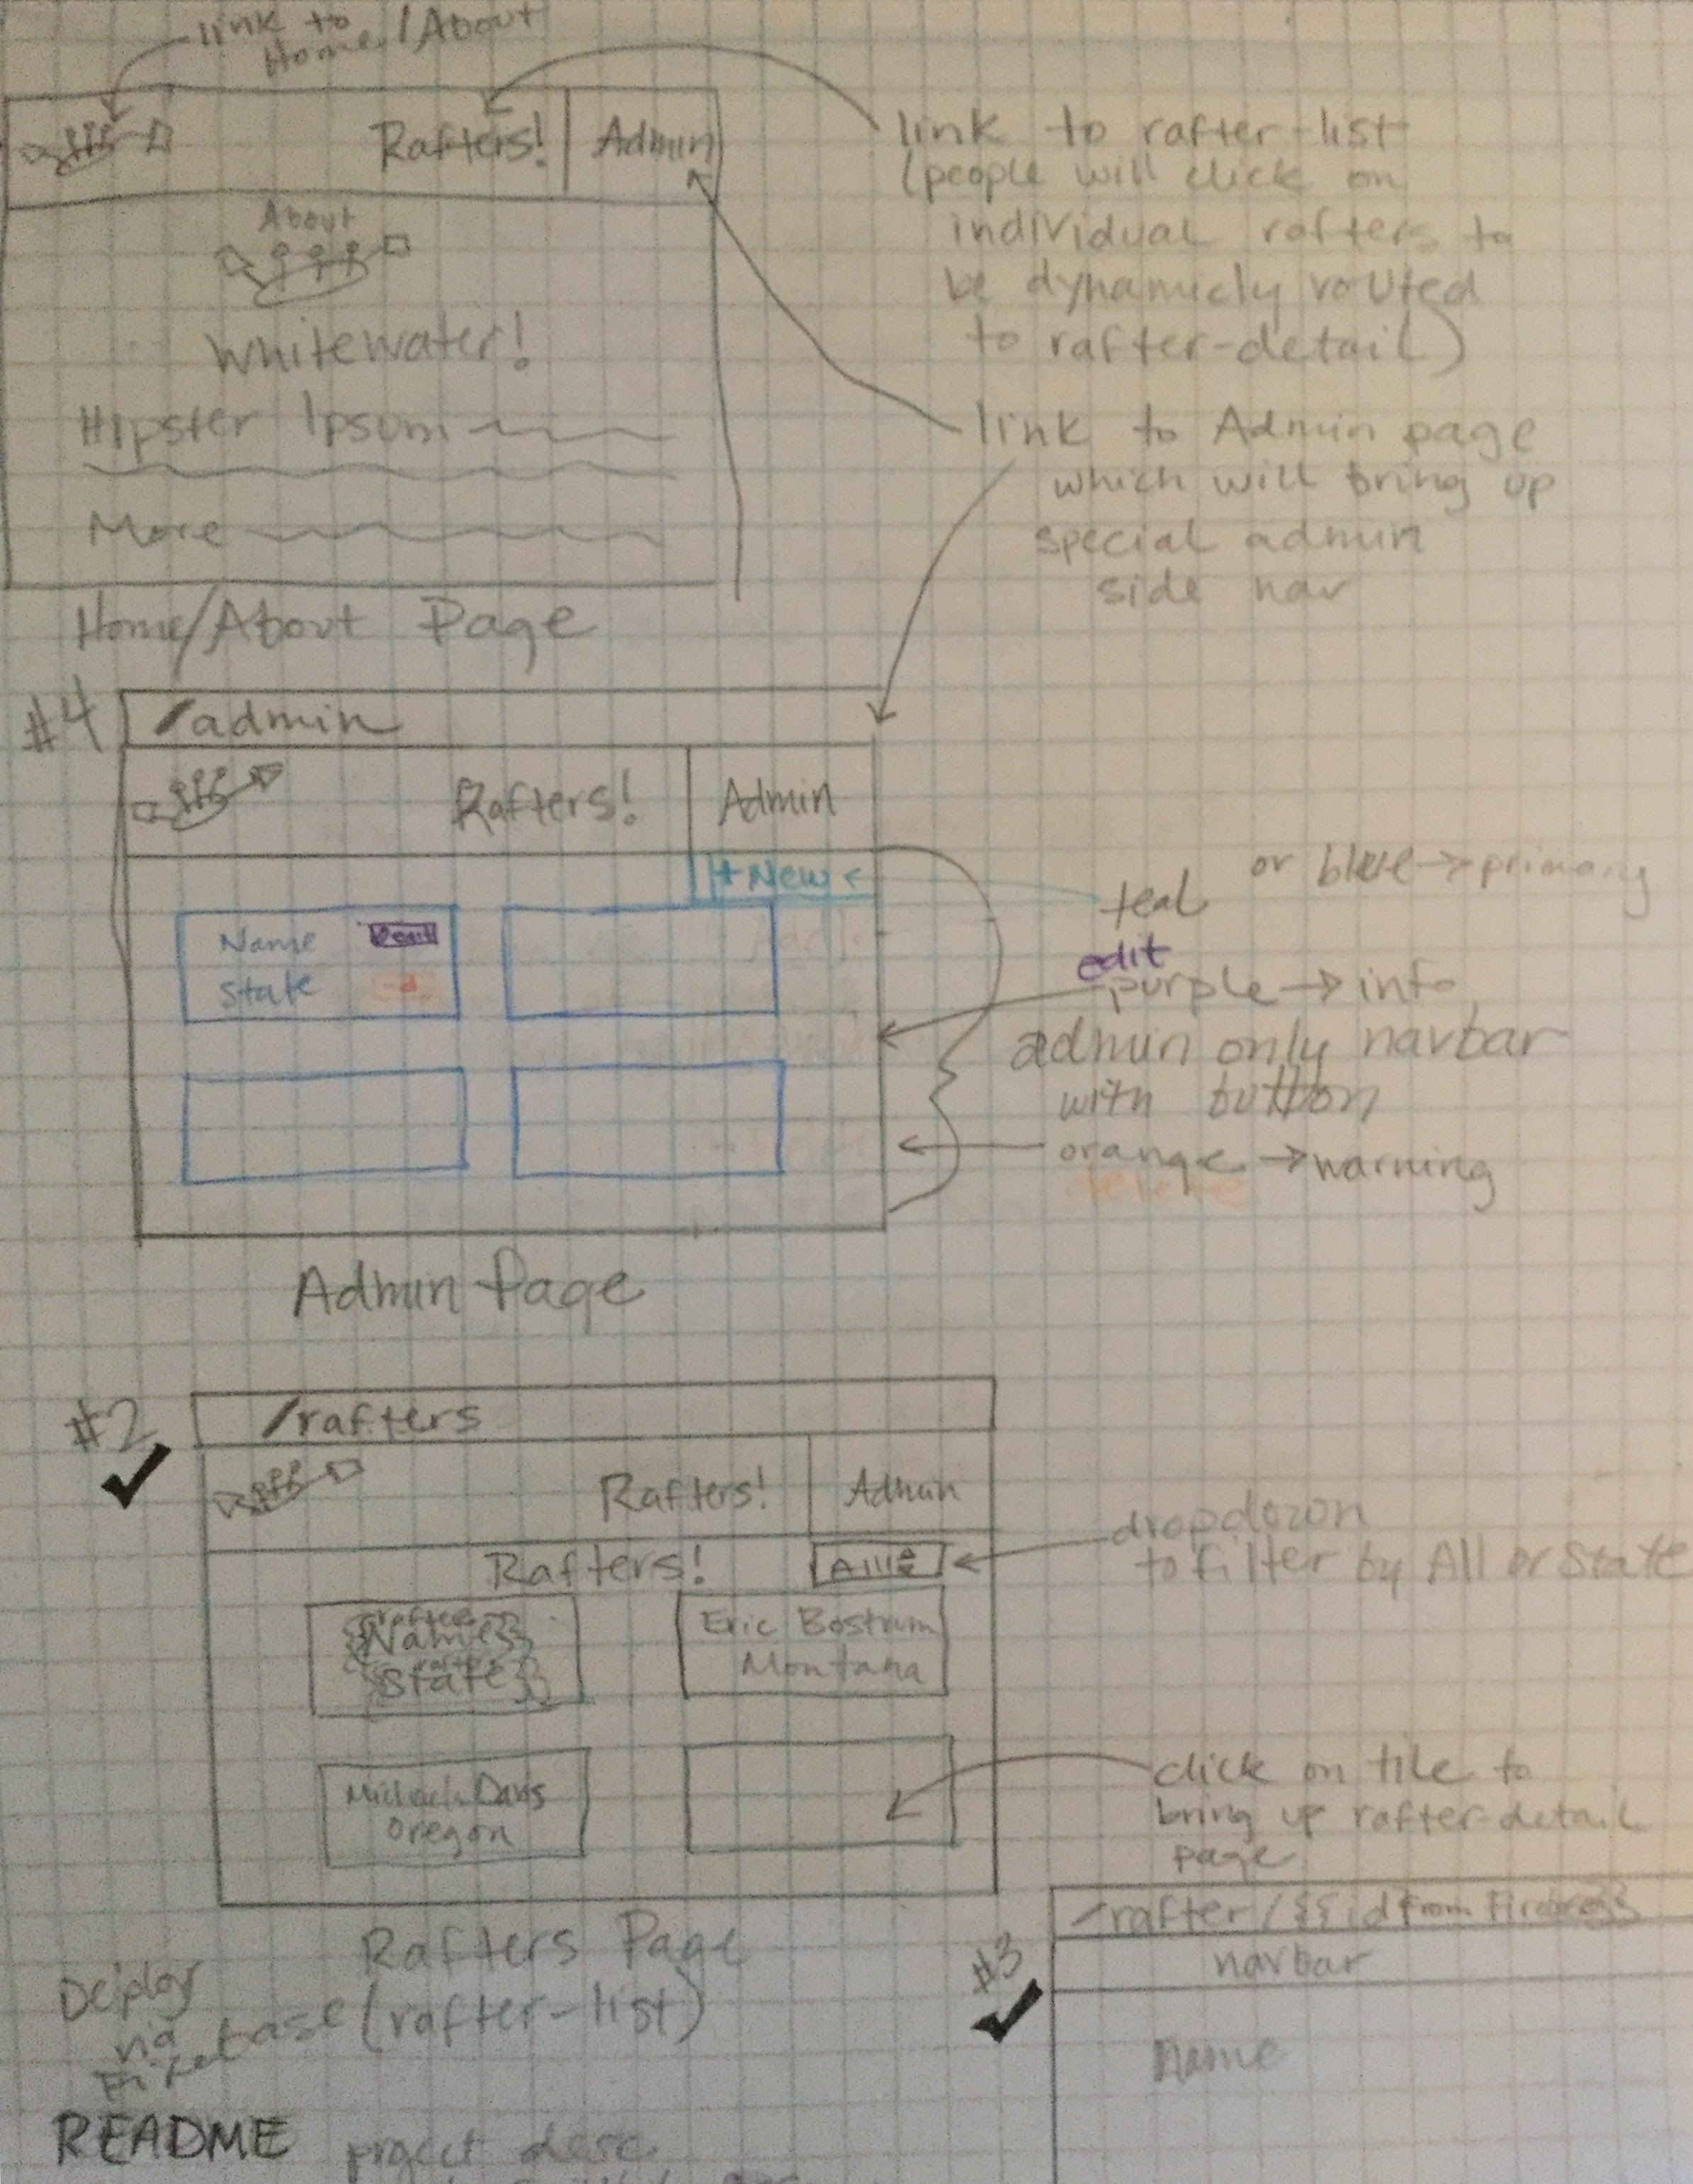 link to
Home/About
Rafters! Admin
About
Whitewater!
Hipster Ipsum
More
Home/About Page
link to rafter-list
(people will click on
individual rafters to
be dynamicly routed
to rafter-detail)
link to Admin page
which will bring up
special admin
side nav
#4
/admin
Rafters! Admin
+New
Name
State
teal or blue → primary
edit
purple → info
admin only navbar
with button
orange → warning
delete
Admin Page
#2
/rafters
Rafters! Admin
Rafters! All
dropdown
to filter by All or State
{{rafter
Name}}
{{rafter
State}}
Eric Bostrum
Montana
Davis
Oregon
click on tile to
bring up rafter-detail
page
Rafters Page
(rafter-list)
#3
/rafter/{{id from
navbar
Name
Deploy
via
Firebase
README project desc